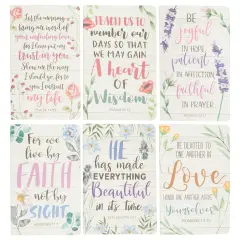 Let the morning
bring me word of
your unfailing love,
for I have put my
trust in you.
Show me the way
I should go, for to
you I entrust
my life
PSALM 143:8
TEACH US TO
number our
DAYS SO THAT
WE MAY GAIN
A heart
OF
Wisdom
PSALM 90:12
BE
joyful
IN HOPE
patient
IN AFFLICTION
faithful
IN PRAYER.
For we
live by
FAITH
not by
SIGHT.
HE
has made
EVERYTHING
Beautiful
in its time.
BE DEVOTED TO
ONE ANOTHER IN
Love
HONOR ONE ANOTHER ABOVE
Yourselves